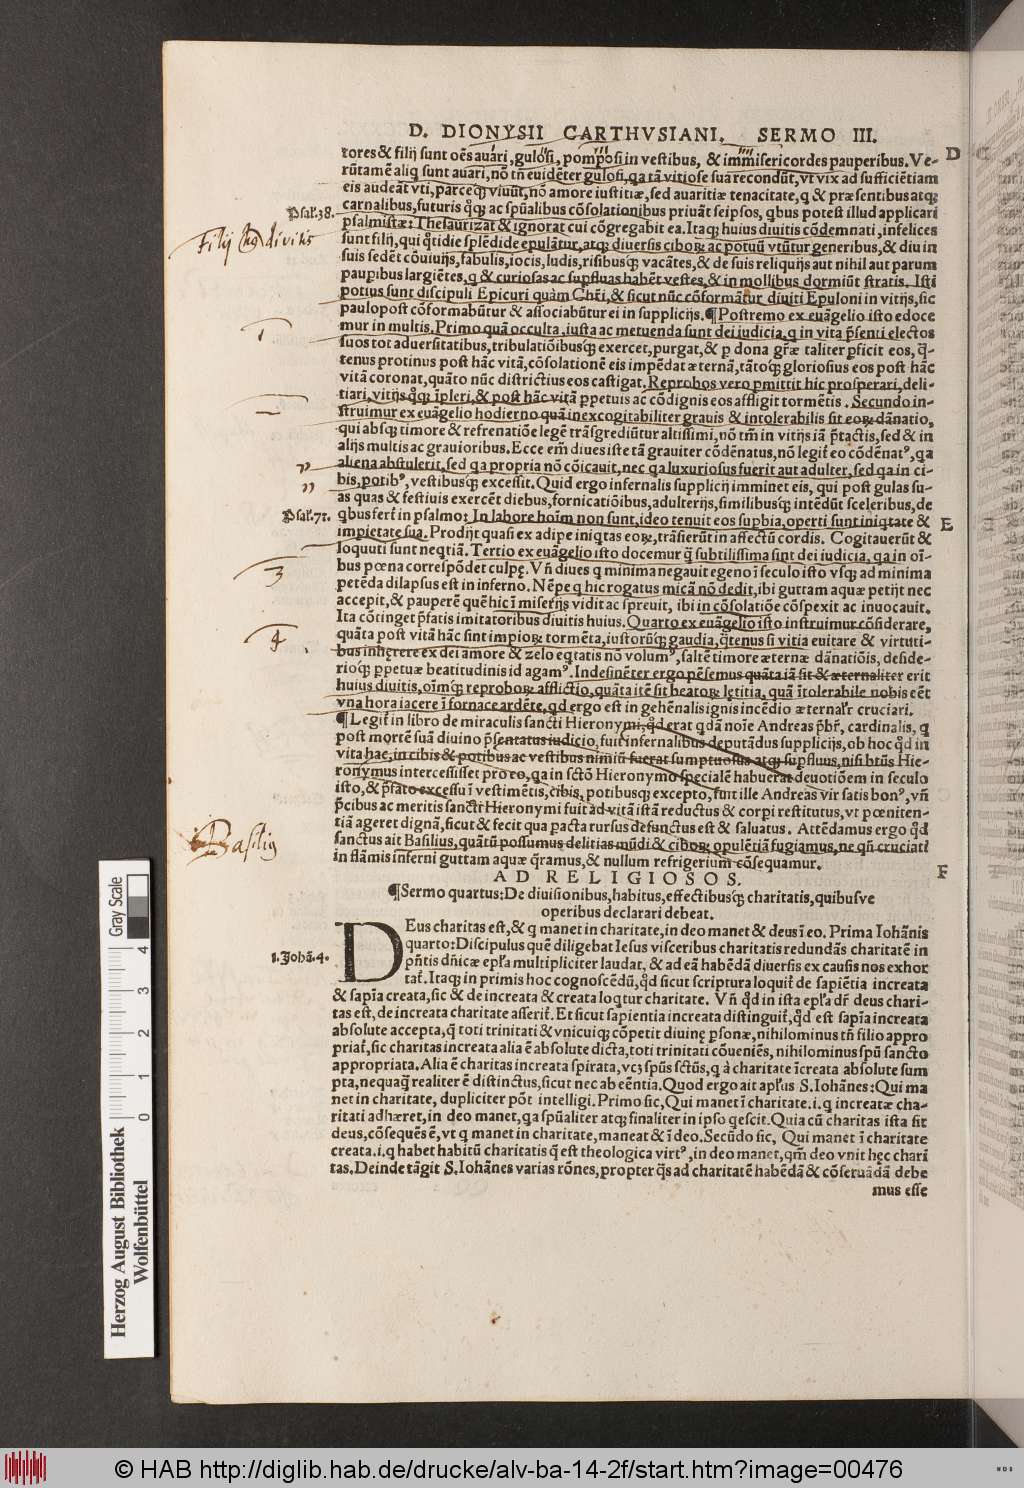 D. DIONYSII CARTHVSIANI. SERMO III.
tores & filij sunt oēs auari, gulosi, pomposi in vestibus, & immisericordes pauperibus. Ve-
D
rūtamē aliq sunt auari, nō tñ euidēter gulosi, qa tā vitiose sua recondūt, vt vix ad sufficiētiam
eis audeāt vti, parceq; viuūt, nō amore iustitiæ, sed auaritiæ tenacitate, q & præsentibus atq;
Psal. 38.
carnalibus, futuris q̃q; ac spūalibus cōsolationibus priuāt seipsos, qbus potest illud applicari
psalmistæ: Thesaurizat & ignorat cui cōgregabit ea. Itaq; huius diuitis cōdemnati, infelices
Filij divitis
sunt filij, qui q̃tidie splēdide epulātur, atq; diuersis cibor̨ ac potuū vtūtur generibus, & diu in
suis sedēt cōuiuijs, fabulis, iocis, ludis, risibusq; vacātes, & de suis reliquijs aut nihil aut parum
paupibus largiētes, q & curiosas ac supfluas habēt vestes, & in mollibus dormiūt stratis. Isti
potius sunt discipuli Epicuri quàm Chr̃i, & sicut nūc cōformātur diuiti Epuloni in vitijs, sic
paulopost cōformabūtur & associabūtur ei in supplicijs. ¶ Postremo ex euāgelio isto edoce
1
mur in multis. Primo quā occulta, iusta ac metuenda sunt dei iudicia, q in vita p̃senti electos
suos tot aduersitatibus, tribulatiōibusq; exercet, purgat, & p dona gr̃æ taliter pficit eos, q̃-
tenus protinus post hāc vitā, cōsolationē eis impēdat æternā, tātoq; gloriosius eos post hāc
vitā coronat, quāto nūc districtius eos castigat. Reprobos vero pmittit hic prosperari, deli-
tiari, vitijs q̃q; īpleri, & post hāc vitā ppetuis ac cōdignis eos affligit tormētis. Secundo in-
struimur ex euāgelio hodierno quā inexcogitabiliter grauis & intolerabilis sit eor̨ dānatio,
qui absq; timore & refrenatiōe legē trāsgrediūtur altissimi, nō tm̃ in vitijs iā p̃tactis, sed & in
alijs multis ac grauioribus. Ecce em̃ diues iste tā grauiter cōdēnatus, nō legit̃ eo cōdēnatꝰ, qa
aliena abstulerit, sed qa propria nō cōicauit, nec qa luxuriosus fuerit aut adulter, sed qa in ci-
bis, potibꝰ, vestibusq; excessit. Quid ergo infernalis supplicij imminet eis, qui post gulas su-
as quas & festiuis exercēt diebus, fornicatiōibus, adulterijs, similibusq; intēdūt sceleribus, de
Psal. 71.
qbus fert̃ in psalmo: In labore hoīm non sunt, ideo tenuit eos supbia, operti sunt iniqtate &
E
impietate sua. Prodijt quasi ex adipe iniqtas eor̨, trāsierūt in affectū cordis. Cogitauerūt &
loquuti sunt neqtiā. Tertio ex euāgelio isto docemur q̃ subtilissima sint dei iudicia, qa in oī-
3
bus pœna correspōdet culpę. Vñ diues q minima negauit egeno ī seculo isto vsq; ad minima
petēda dilapsus est in inferno. Nēpe q hic rogatus micā nō dedit, ibi guttam aquæ petijt nec
accepit, & pauperē quē hic ī miserijs vidit ac spreuit, ibi in cōsolatiōe cōspexit ac inuocauit.
Ita cōtinget p̃fatis imitatoribus diuitis huius. Quarto ex euāgelio isto instruimur cōsiderare,
4
quāta post vitā hāc sint impior̨ tormēta, iustorūq; gaudia, q̃tenus si vitia euitare & virtuti-
bus inhęrere ex dei amore & zelo eqtatis nō volumꝰ, saltē timore æternæ dānatiōis, deside-
rioq; ppetuæ beatitudinis id agamꝰ. Indesinēter ergo pēsemus quāta iā sit & æternaliter erit
huius diuitis, oīmq; reprobor̨ afflictio, quāta itē sit beator̨ lętitia, quā ītolerabile nobis eēt
vna hora iacere ī fornace ardēte, qd ergo est in gehēnalis ignis incēdio æternalr̃ cruciari.
¶ Legit̃ in libro de miraculis sancti Hieronymi, q̃d erat qdā noīe Andreas p̃br̃, cardinalis, q
post mortē suā diuino p̃sentatus iudicio, fuit infernalibus deputādus supplicijs, ob hoc q̃d in
vita hac, in cibis & potibus ac vestibus nimiū fuerat sumptuosus atq; supfluus, nisi btūs Hie-
ronymus intercessisset pro eo, qa in sctō Hieronymo specialē habuerat deuotiōem in seculo
isto, & p̃fato excessu ī vestimētis, cibis, potibusq; excepto, fuit ille Andreas vir satis bonꝰ, vñ
p̃cibus ac meritis sanct̃ Hieronymi fuit ad vitā istā reductus & corpi restitutus, vt pœniten-
tiā ageret dignā, sicut & fecit qua pacta rursus defunctus est & saluatus. Attēdamus ergo q̃d
Basilig
sanctus ait Basilius, quātū possumus delitias mūdi & cibor̨ opulētiā fugiamus, ne qñ cruciati
in flāmis inferni guttam aquæ q̃ramus, & nullum refrigerium cōsequamur.
AD RELIGIOSOS.
F
¶ Sermo quartus: De diuisionibus, habitus, effectibusq; charitatis, quibusve
operibus declarari debeat.
DEus charitas est, & q manet in charitate, in deo manet & deus ī eo. Prima Iohānis
1. Johā. 4.
quarto: Discipulus quē diligebat Iesus visceribus charitatis redundās charitatē in
p̃ñtis dñicæ epl̃a multipliciter laudat, & ad eā habēdā diuersis ex causis nos exhor
tat̃. Itaq; in primis hoc cognoscēdū, q̃d sicut scriptura loquit̃ de sapiētia increata
& sapīa creata, sic & de increata & creata loqtur charitate. Vñ q̃d in ista epl̃a dr̃ deus chari-
tas est, de increata charitate asserit̃. Et sicut sapientia increata distinguit̃, q̃d est sapīa increata
absolute accepta, q̃ toti trinitati & vnicuiq; cōpetit diuinę psonæ, nihilominus tñ filio appro
priat̃, sic charitas increata alia ē absolute dicta, toti trinitati cōueniēs, nihilominus spū sancto
appropriata. Alia ē charitas increata spirata, vcꝫ spūs sctūs, q à charitate īcreata absolute sum
pta, nequaq̃ realiter ē distinctus, sicut nec ab eēntia. Quod ergo ait apl̃us S. Iohānes: Qui ma
net in charitate, dupliciter pōt intelligi. Primo sic, Qui manet ī charitate. i. q increatæ cha-
ritati adhæret, in deo manet, qa spūaliter atq; finaliter in ipso gescit. Quia cū charitas ista sit
deus, cōsequēs ē, vt q manet in charitate, maneat & ī deo. Secūdo sic, Qui manet ī charitate
creata. i. q habet habitū charitatis q̃ est theologica virtꝰ, in deo manet, qm̃ deo vnit hęc chari
tas. Deinde tāgit S. Iohānes varias rōnes, propter q̃s ad charitatē habēdā & cōseruādā debe
mus esse
Gray Scale
0 1 2 3 4
Herzog August Bibliothek
Wolfenbüttel
© HAB http://diglib.hab.de/drucke/alv-ba-14-2f/start.htm?image=00476